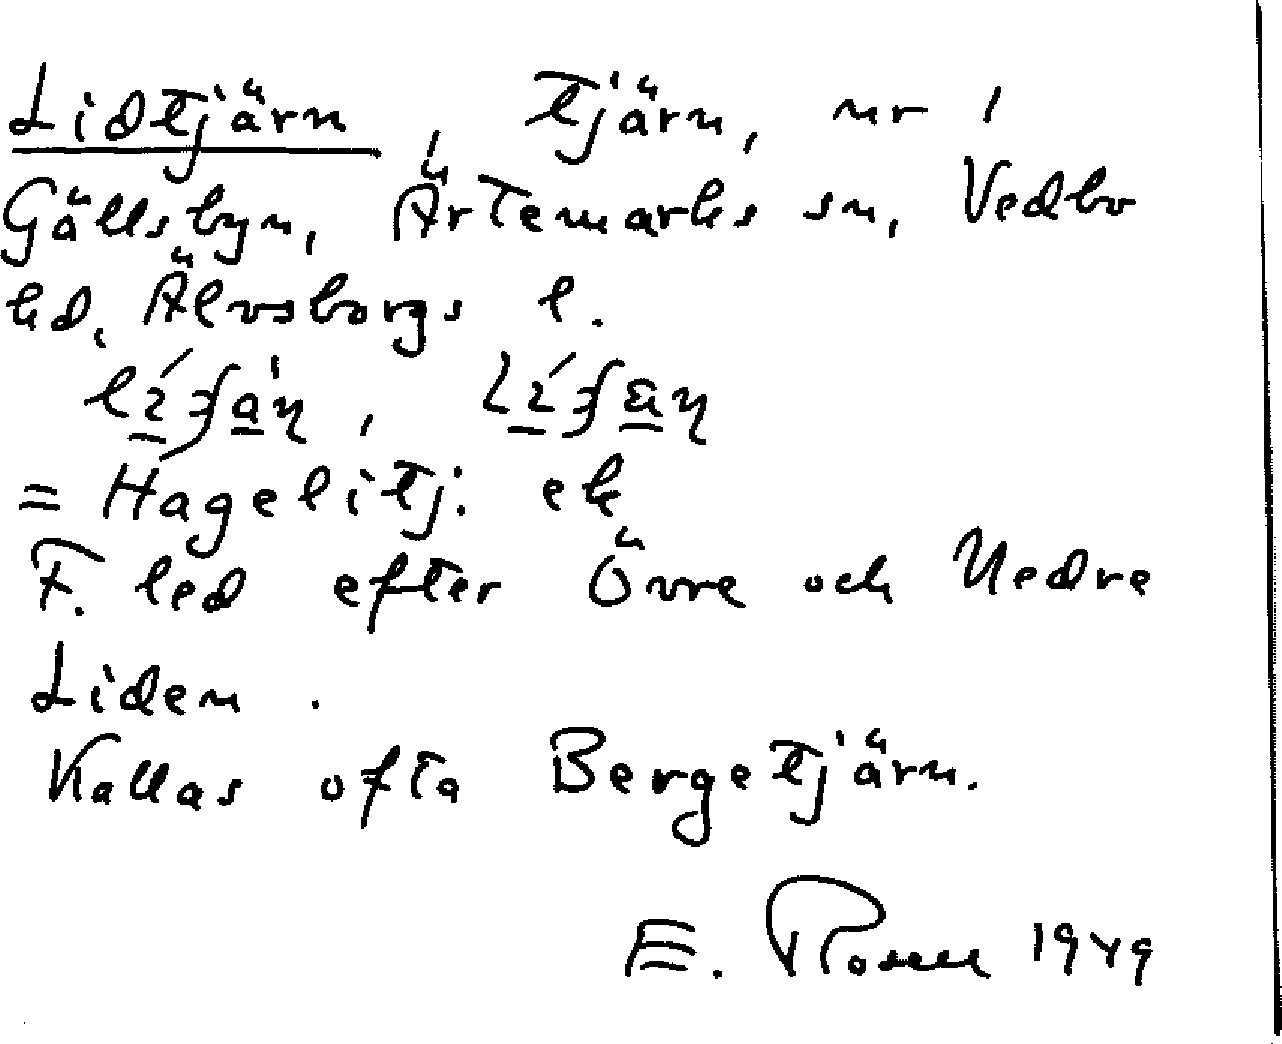 Lidtjärn, tjärn, nr 1
Gällsbyn, Ärtemarks sn, Vedbo
hd, Älvsborgs l.
= Hagelitj. ek
F. led efter Övre och Nedre
Liden.
Kallas ofta Bergetjärn.
E. Rosell 1949